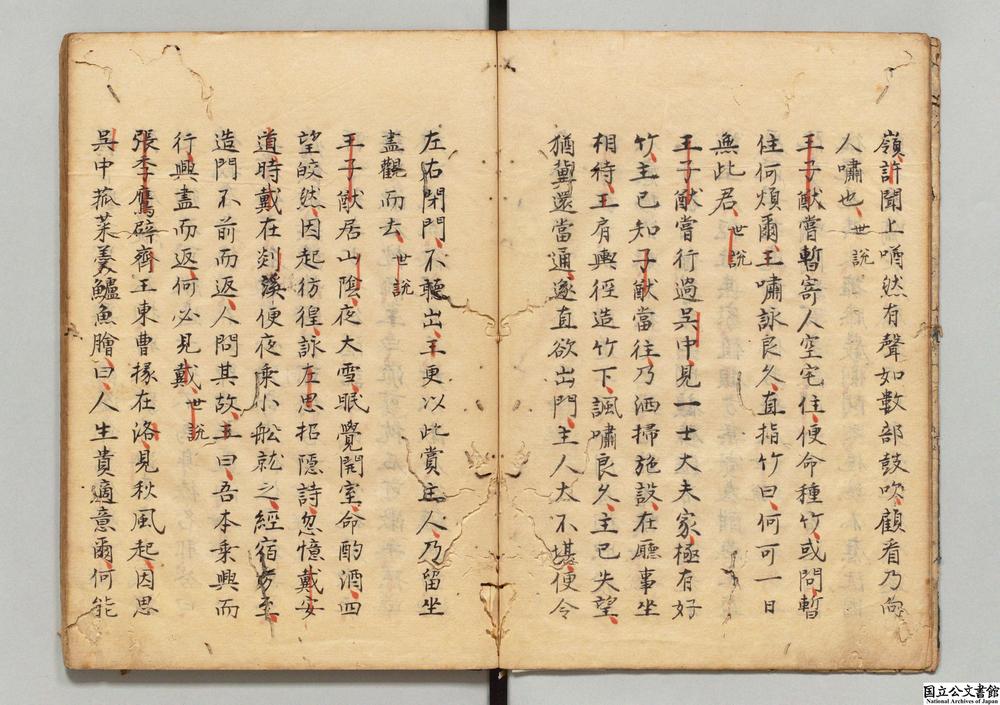 嶺許聞上㗀然有聲如數部鼓吹顧看乃向
人嘯也世說
王子猷嘗暫寄人空宅住便命種竹或問暫
住何煩爾王嘯詠良久直指竹曰何可一日
無此君世說
王子猷嘗行過吳中見一士大夫家極有好
竹主已知子猷當往乃洒掃施設在廳事坐
相待王肩輿徑造竹下諷嘯良久主已失望
猶冀還當通遂直欲出門主人大不堪便令
左右閉門不聽出王更以此賞主人乃留坐
盡觀而去世說
王子猷居山陰夜大雪眠覺開室命酌酒四
望皎然因起彷徨詠左思招隱詩忽憶戴安
道時戴在剡溪便夜乘小舩就之經宿方至
造門不前而返人問其故王曰吾本乘興而
行興盡而返何必見戴世說
張季鷹辟齊王東曹掾在洛見秋風起因思
吳中菰菜羹鱸魚膾曰人生貴適意爾何能
国立公文書館
National Archives of Japan